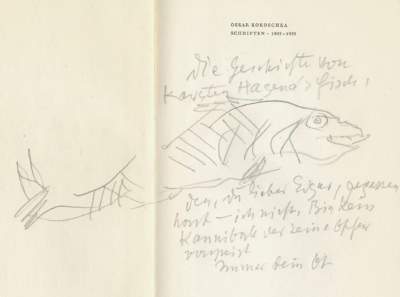 OSKAR KOKOSCHKA
SCHRIFTEN · 1907–1955
Die Geschichte von
Karsten Hagens Fisch,
den, du lieber Edgar, gegessen
hast – ich nicht. Bin kein
Kannibale der seine Opfer
verspeist
Immer dein OK